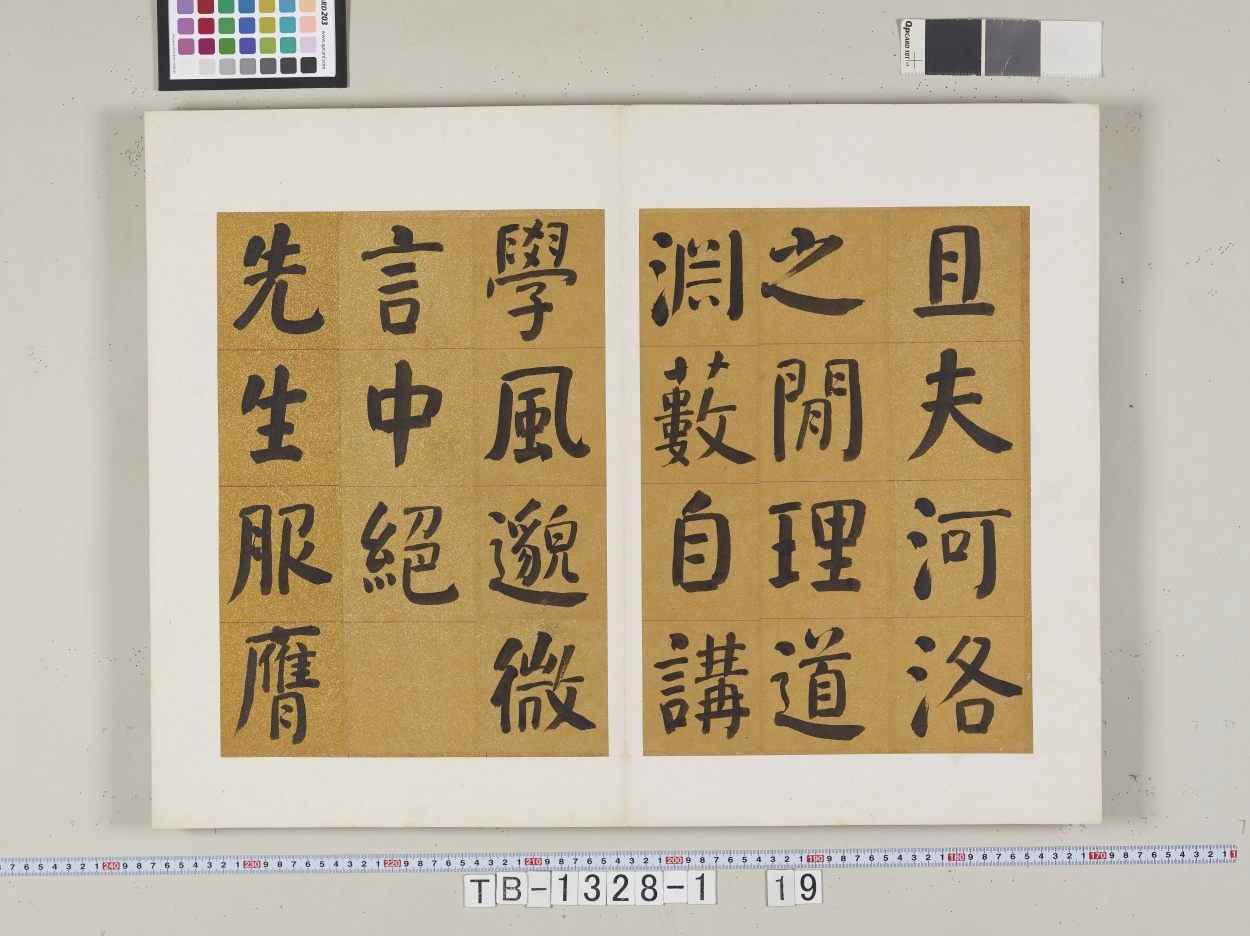 且夫河洛
之閒理道
淵藪自講
學風邈微
言中絕
先生服膺
TB-1328-1 19